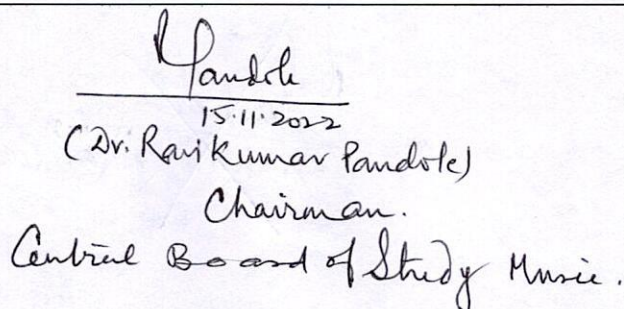 Pandole
15.11.2022
(Dr. Ravi Kumar Pandole)
Chairman.
Central Board of Study Music.